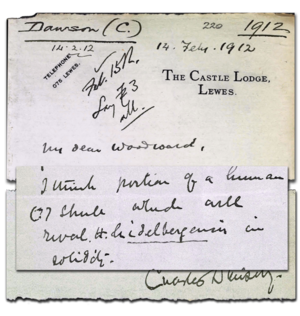 Dawson (C.)
220
1912
14.2.12
14. Feby. 1912
TELEPHONE
Feb. 15th.
THE CASTLE LODGE,
LEWES.
My dear Woodward,
I think portion of a human
skull which will
rival H. heidelbergensis in
solidity.
Charles Dawson